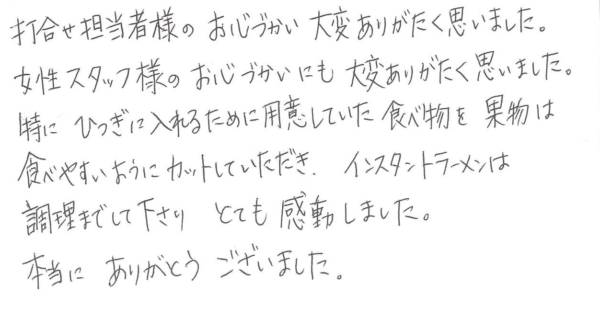 打合せ担当者様の お心づかい 大変ありがたく思いました。
女性スタッフ様の お心づかいにも 大変ありがたく思いました。
特に ひつぎに入れるために用意していた 食べ物を 果物は
食べやすいようにカットしていただき、 インスタントラーメンは
調理までして下さり とても 感動しました。
本当に ありがとう ございました。